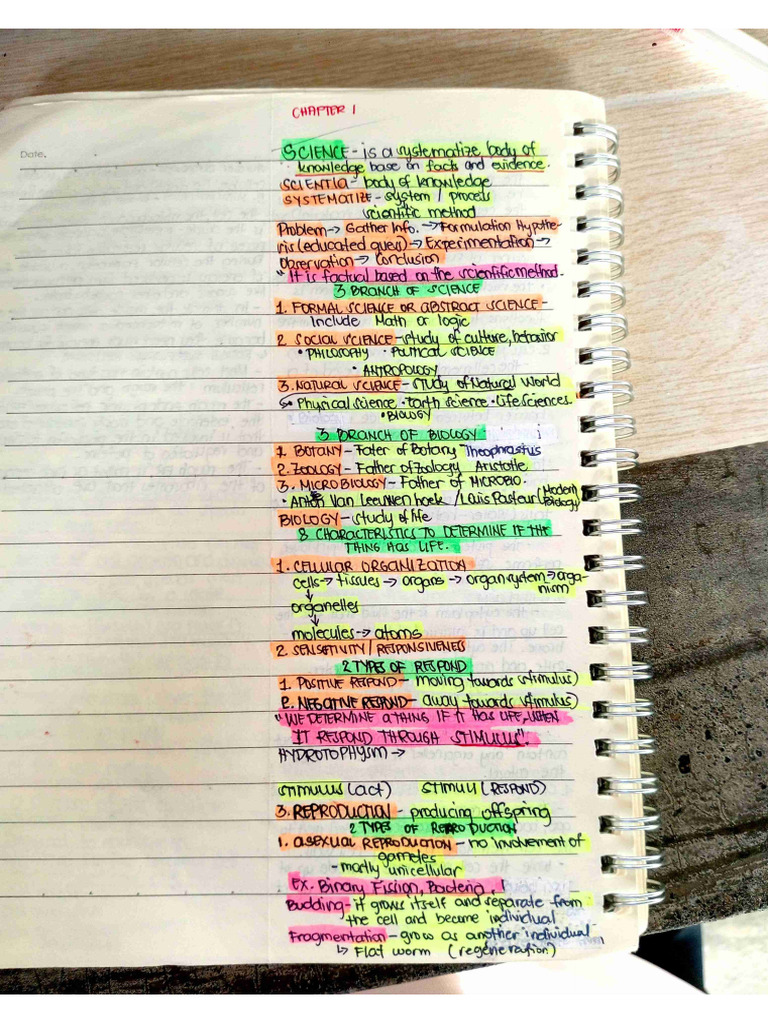 CHAPTER 1
Date.
SCIENCE - is a systematize body of
knowledge base on facts and evidence.
SCIENTIA - body of knowledge
SYSTEMATIZE - system / process
scientific method
Problem → Gather Info. → Formulation Hypothe-
sis (educated guess) → Experimentation →
Observation → Conclusion
"It is factual based on the scientific method.
3 BRANCH OF SCIENCE
1. FORMAL SCIENCE OR ABSTRACT SCIENCE -
Include Math or logic
2. SOCIAL SCIENCE - study of culture, behavior
• PHILOSOPHY • POLITICAL SCIENCE
• ANTROPOLOGY
3. NATURAL SCIENCE - study of Natural World
• Physical science • Earth science • Life Sciences.
• BIOLOGY
3 BRANCH OF BIOLOGY
1. BOTANY - Fater of Botany Theophrastus
2. ZOOLOGY - Father of Zoology Aristotle
3. MICROBIOLOGY - Father of MICROBIO.
• Anton Van Leeuwenhoek / Luis Pasteur (Modern Biology)
BIOLOGY - study of life
8 CHARACTERISTICS TO DETERMINE IF THE
THING HAS LIFE.
1. CELLULAR ORGANIZATION
cells → tissues → organs → organ system → orga-
nism
↓
organelles
↓
molecules → atoms
2. SENSITIVITY / RESPONSIVENESS
2 TYPES OF RESPOND
1. POSITIVE RESPOND - moving towards (stimulus)
2. NEGATIVE RESPOND - away towards (stimulus)
"WE DETERMINE A THING IF IT HAS LIFE, WHEN
IT RESPOND THROUGH STIMULUS".
HYDROTOPHYSM →
STIMULUS (act) STIMULI (RESPOND)
3. REPRODUCTION - producing offspring
2 TYPES OF REPRODUCTION
1. ASEXUAL REPRODUCTION - no involvement of
gametes
- mostly unicellular
EX. Binary Fission, Bacteria,
Budding - it grows itself and separate from
the cell and become individual
Fragmentation - grow as another individual
↳ Flat worm (regeneration)